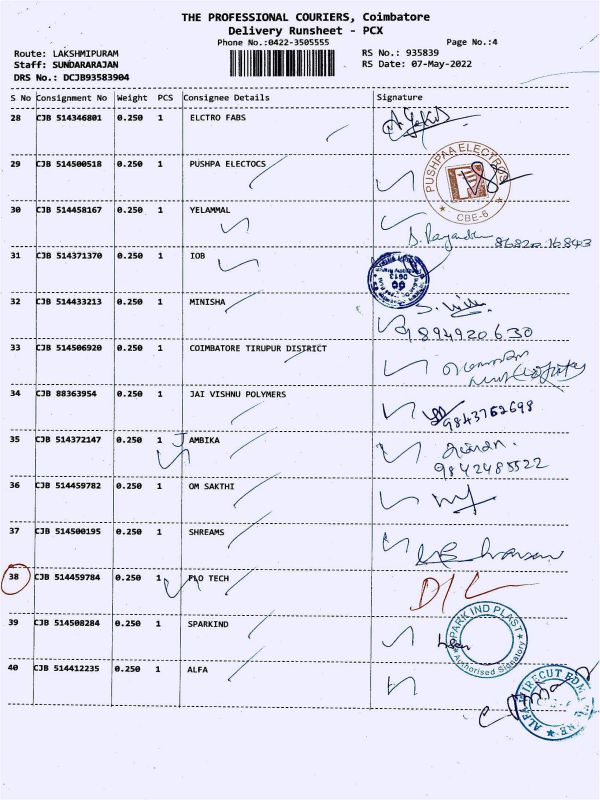 THE PROFESSIONAL COURIERS, Coimbatore
Delivery Runsheet - PCX
Phone No.:0422-3505555
Page No.:4
Route: LAKSHMIPURAM
RS No.: 935839
Staff: SUNDARARAJAN
RS Date: 07-May-2022
DRS No.: DCJB93583904
S No Consignment No Weight PCS Consignee Details Signature
28 CJB 514346801 0.250 1 ELCTRO FABS
29 CJB 514500518 0.250 1 PUSHPA ELECTOCS
PUSHPAA ELECTROS
★ CBE-6 ★
30 CJB 514458167 0.250 1 YELAMMAL
86820 16843
31 CJB 514371370 0.250 1 IOB
0613
32 CJB 514433213 0.250 1 MINISHA
9894920630
33 CJB 514506920 0.250 1 COIMBATORE TIRUPUR DISTRICT
34 CJB 88363954 0.250 1 JAI VISHNU POLYMERS
9843762698
35 CJB 514372147 0.250 1 JAMBIKA
9842485522
36 CJB 514459782 0.250 1 OM SAKTHI
37 CJB 514500195 0.250 1 SHREAMS
38 CJB 514459784 0.250 1 FLO TECH
D/L
39 CJB 514508284 0.250 1 SPARKIND
SPARK IND PLAST
★ Authorised Signatory ★
40 CJB 514412235 0.250 1 ALFA